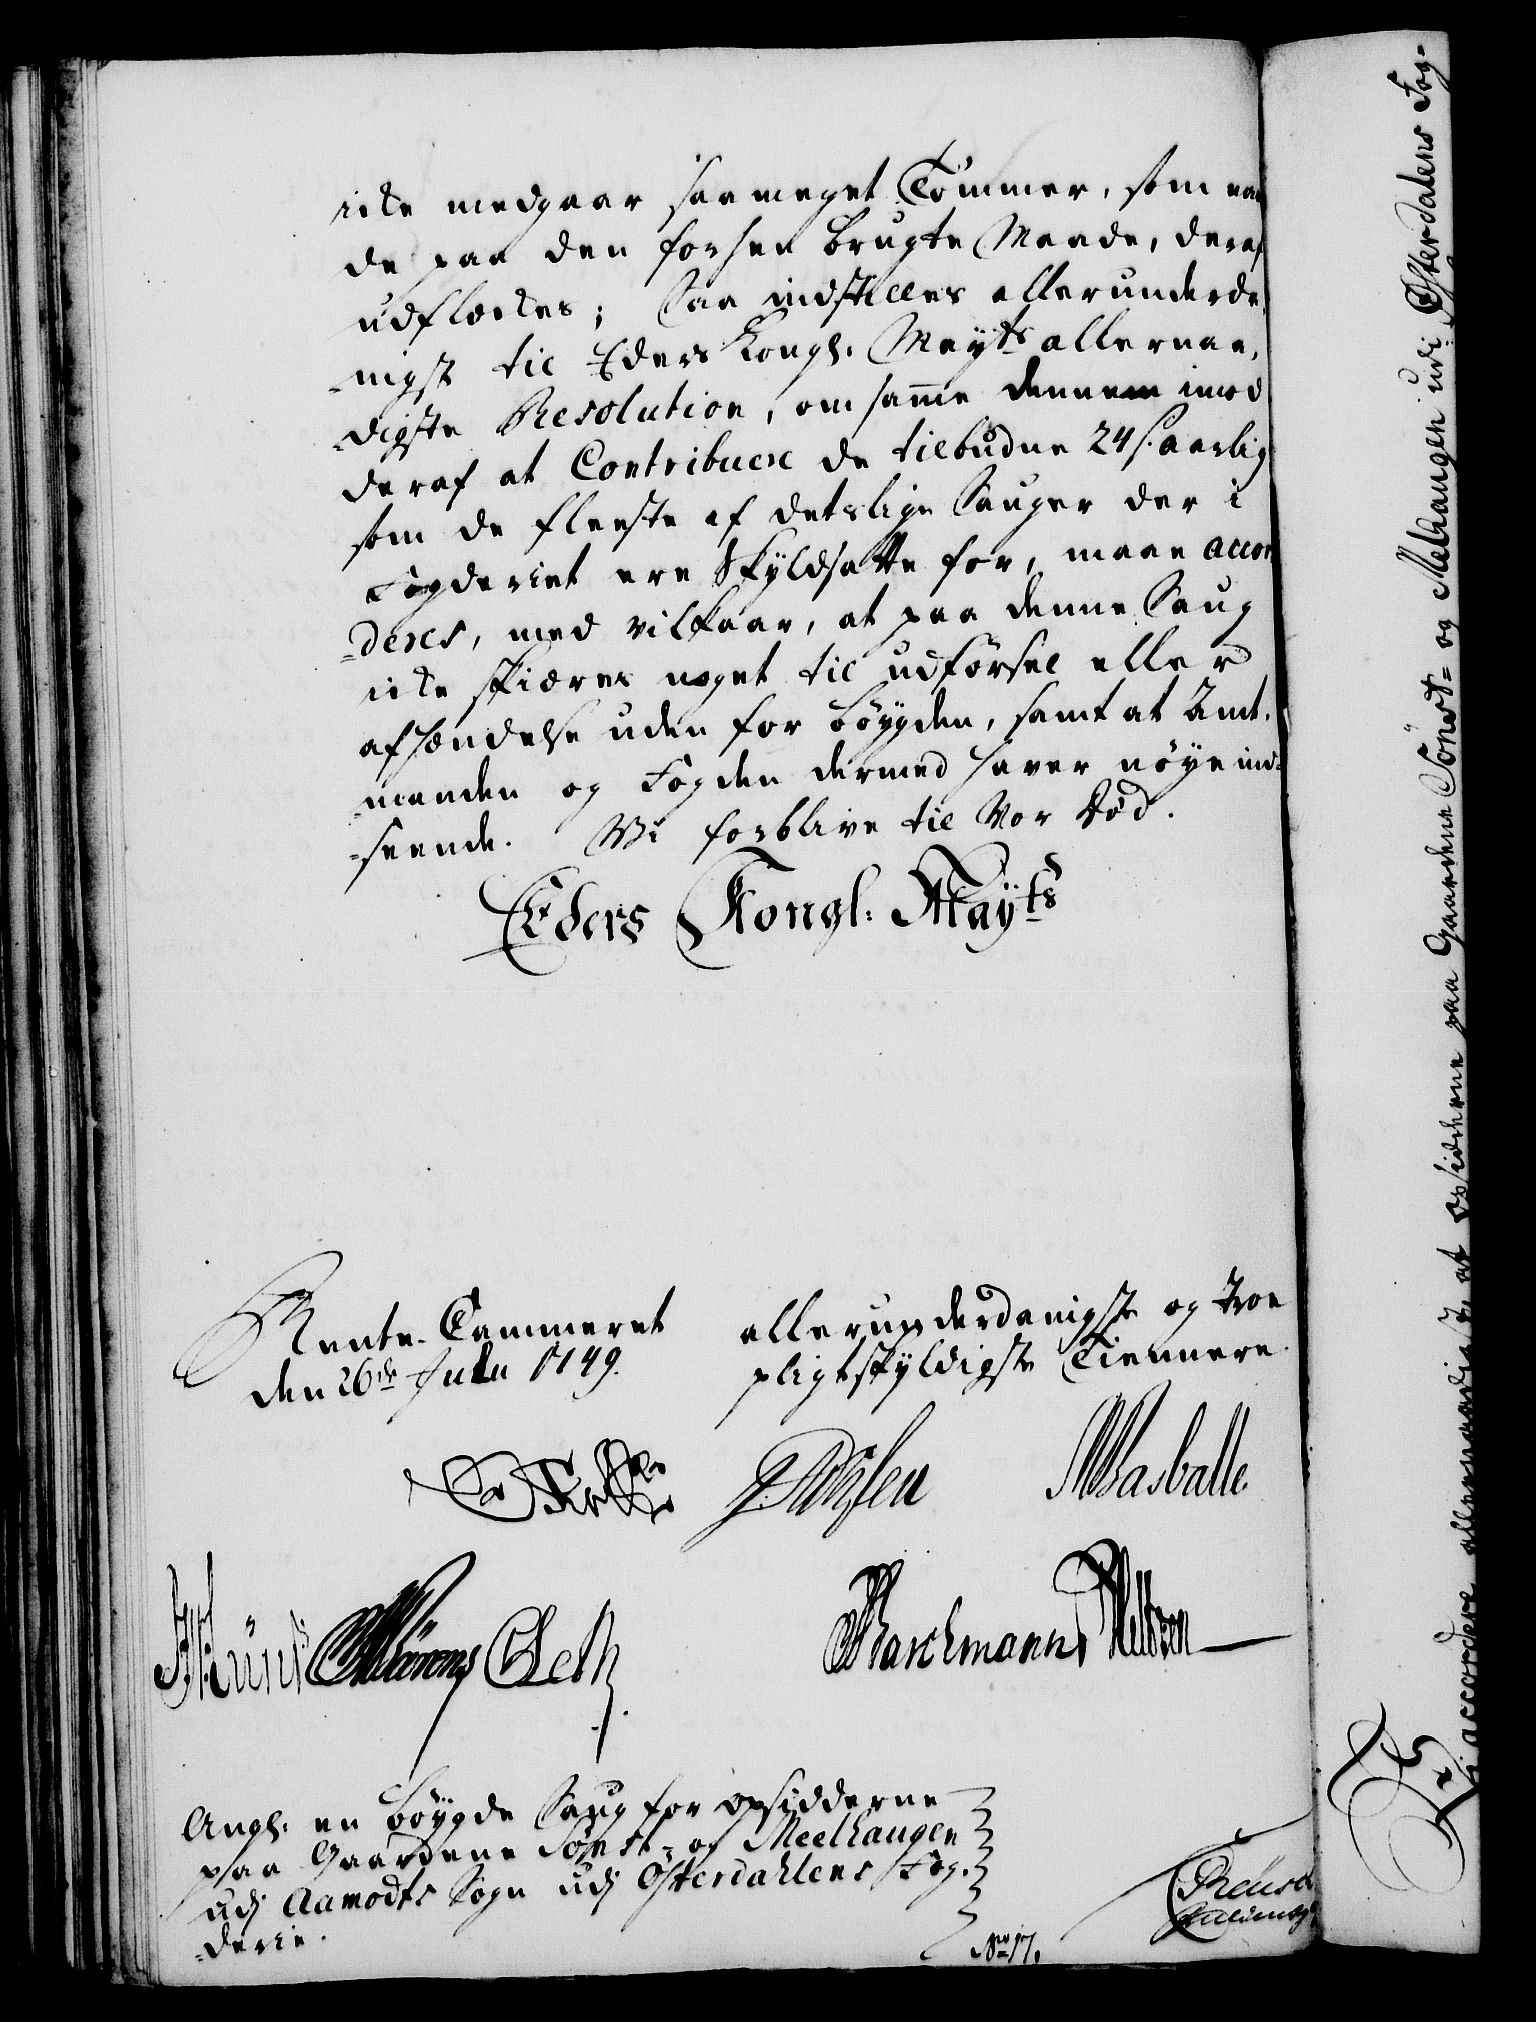 icke medgaar saa meget Tömmer, som naar
de paa den forhen brugte Maade, deraf
udflækkes; Saa indstilles allerunderda,
-nigst til Eders Kongl. Mayts allernaa,
-digste Resolution, om samme dennem imod
deraf at Contribuere de tilbudne 24 s. aarlig
som de fleeste af detslige Sauger der i
Fogderiet ere Skyldsatte for, maae accor
=deres, med vilkaar, at paa denne Saug
icke skiæres noget til udförsel eller
afhændelse uden for böygden, samt at Amt,
=manden og Fogden dermed haver nöye ind=
=seende. Wi forblive til Vor Död.
Eders Kongl. Mayts
Rente-Cammeret
den 26de July 1749.
allerunderdanigste og troe
pligtskyldigste Tiennere.
Rasballe
Barchmann Meltzen
Angl. en böygde Saug for opsidderne
paa Gaardene Sönst- og Meelhaugen
udj Aamodts Sogn udj Österdahlens Fog,
=derie.
No 17.
Vi accordere allernaadigst, at opsidderne paa Gaardene Sönst= og Melhaugen udi Österdalens Fog-